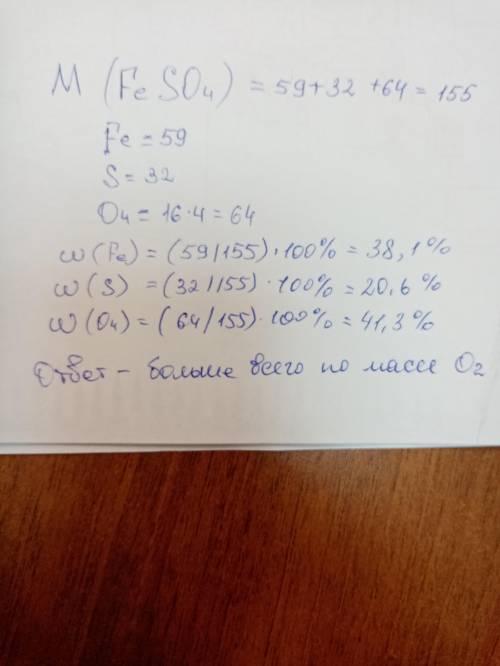 M (FeSO₄) = 59+32+64 = 155
Fe = 59
S = 32
O₄ = 16·4 = 64
ω(Fe) = (59/155)·100% = 38,1%
ω(S) = (32/155)·100% = 20,6%
ω(O₄) = (64/155)·100% = 41,3%
Ответ - больше всего по массе O₂